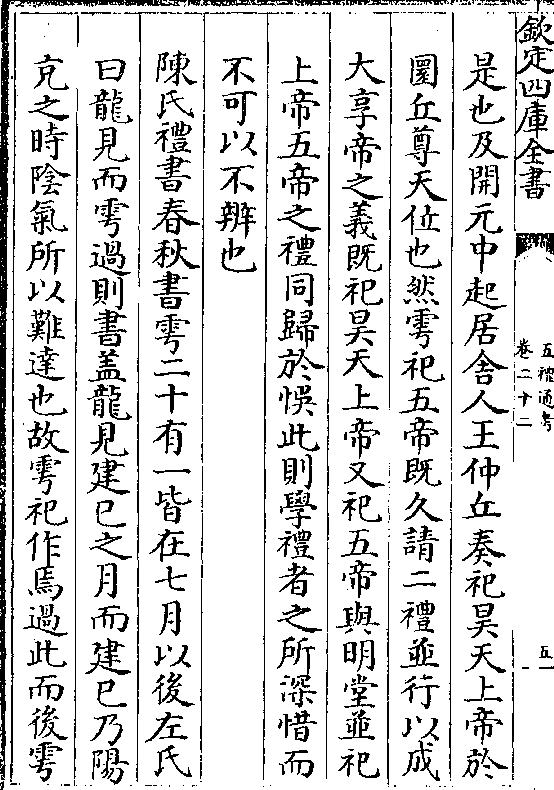 欽定四庫全書
五禮通考
卷二十二
五
是也及開元中起居舍人王仲丘奏祀昊天上帝於
圜丘尊天位也然雩祀五帝既久請二禮並行以成
大享帝之義既祀昊天上帝又祀五帝與明堂並祀
上帝五帝之禮同歸於悞此則學禮者之所深惜而
不可以不辨也
陳氏禮書春秋書雩二十有一皆在七月以後左氏
曰龍見而雩過則書盖龍見建巳之月而建巳乃陽
亢之時陰氣所以難達也故雩祀作焉過此而後雩